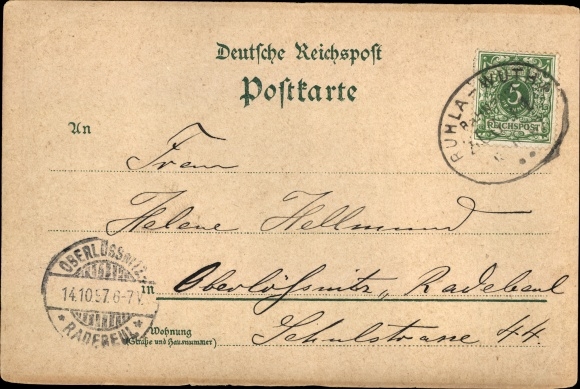 Deutsche Reichspost
Postkarte
5
REICHSPOST
RUHLA - WUTHA
An
Frau
Helene Hellmund
OBERLÖSSNITZ
14.10.97.6-7V.
* RADEBEUL *
in Oberlößnitz, Radebeul
Wohnung
(Straße und Hausnummer)
Schulstrasse 44